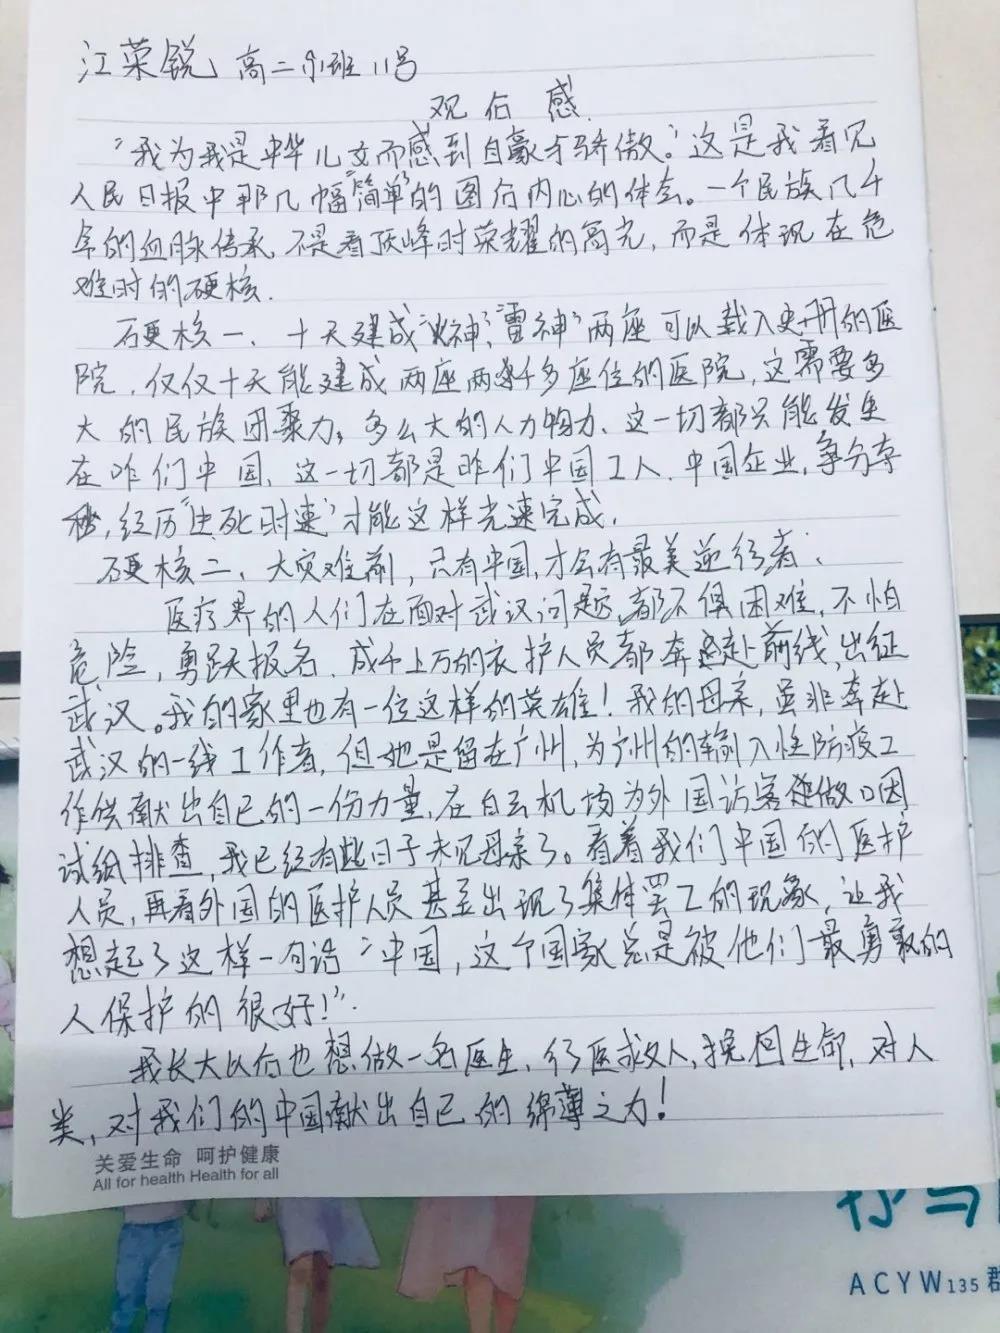 江荣锐 高二小班 11号
观后感
“我为我是中华儿女而感到自豪与骄傲。”这是我看见
人民日报中那几幅“简单”的图后内心的体会。一个民族几千
年的血脉传承,不是看顶峰时荣耀的高光,而是体现在危
难时的硬核.
硬核一、十天建成“火神”“雷神”两座可以载入史册的医
院,仅仅十天能建成两座两千多座位的医院,这需要多
大的民族团聚力,多么大的人力物力、这一切都只能发生
在咱们中国,这一切都是咱们中国工人、中国企业,争分夺
秒,经历“生死时速”才能这样光速完成.
硬核二、大灾难前,只有中国,才会有最美逆行者:
医疗界的人们在面对武汉问题,都不惧困难,不怕
危险,勇跃报名,成千上万的衣护人员都奔赴前线,出征
武汉。我的家里也有一位这样的英雄!我的母亲,虽非奔赴
武汉的一线工作者,但她是留在广州,为广州的输入性防疫工
作供献出自己的一份力量,在白云机场为外国访客做口因
试纸排查,我已经有些日子未见母亲了。看着我们中国的医护
人员,再看外国的医护人员甚至出现了集体罢工的现象,让我
想起了这样一句话“中国,这个国家总是被他们最勇敢的
人保护的很好!”.
我长大以后也想做一名医生,行医救人,挽回生命,对人
类,对我们的中国献出自己的绵薄之力!
关爱生命 呵护健康
All for health Health for all
ACYW135群